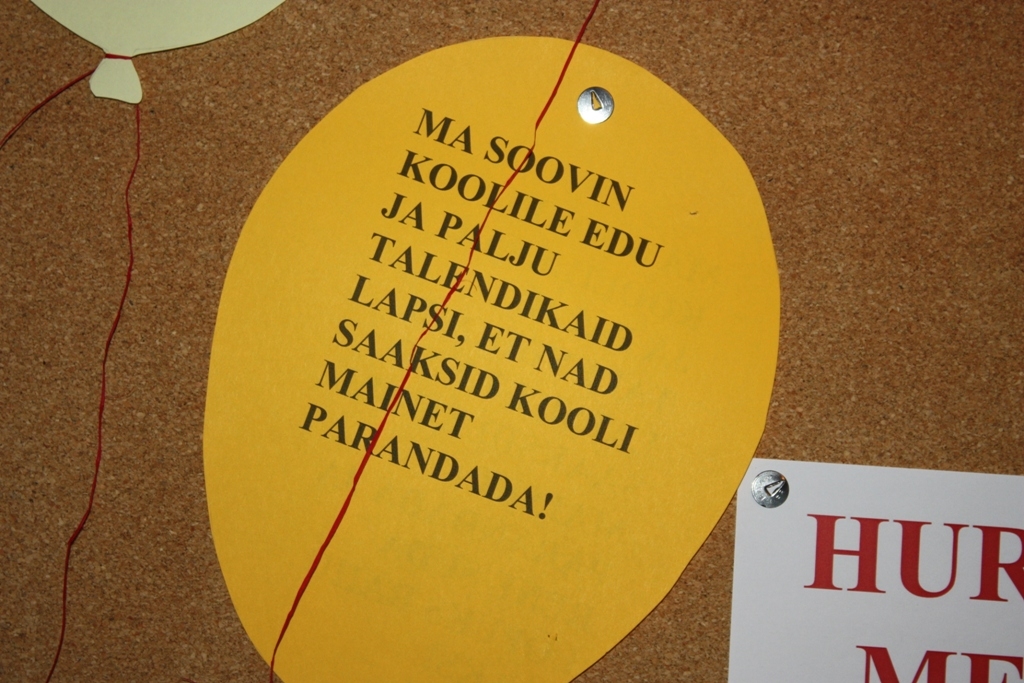 MA SOOVIN
KOOLILE EDU
JA PALJU
TALENDIKAID
LAPSI, ET NAD
SAAKSID KOOLI
MAINET
PARANDADA!